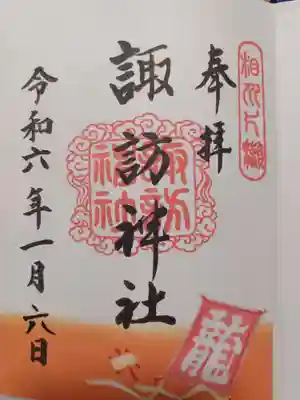 奉拝
諏訪神社
諏訪
神社
令和六年一月六日
龍